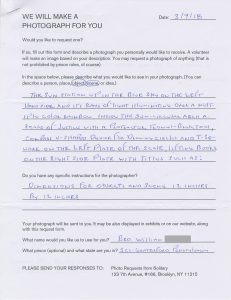 WE WILL MAKE A
PHOTOGRAPH FOR YOU
Date: 3/9/18
Would you like to request one?
If so, fill out this form and describe a photograph you personally would like to receive. A volunteer
will make an image based on your description. You may request a photograph of anything (that is
not prohibited by prison rules, of course).
In the space below, please describe what you would like to see in your photograph. (You can
describe a person, place, object, scene, or idea.)
THE SUN STATION UP IN THE BLUE SKY ON THE LEFT
HAND SIDE AND ITS RAYS OF LIGHT ILLUMINATING ONLY A MULTI-
COLOR RAINBOW THE SURROUNDING ABOVE A
SCALE OF JUSTICE WITH A
COMPASS,
ON THE LEFT PLATE OF THE SCALE, BOOKS
ON THE RIGHT SIDE PLATE WITH TITLES SUCH AS:
Do you have any specific instructions for the photographer?
DIMENSIONS FOR 12 INCHES
BY 12 INCHES
Your photograph will be sent to you. It may also be displayed in exhibits or on our website, along
with this request form.
What name would you like us to use for you? BRO. WILLIAM
What prison (optional) and what state are you in?
PLEASE SEND YOUR RESPONSES TO: Photo Requests from Solitary
123 7th Avenue, #166, Brooklyn, NY 11215